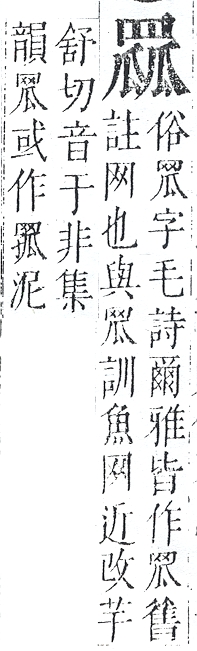 俗罛字毛詩爾雅皆作罛舊
註网也與罛訓魚网近改芊
舒切音于非集
韻罛或作泥